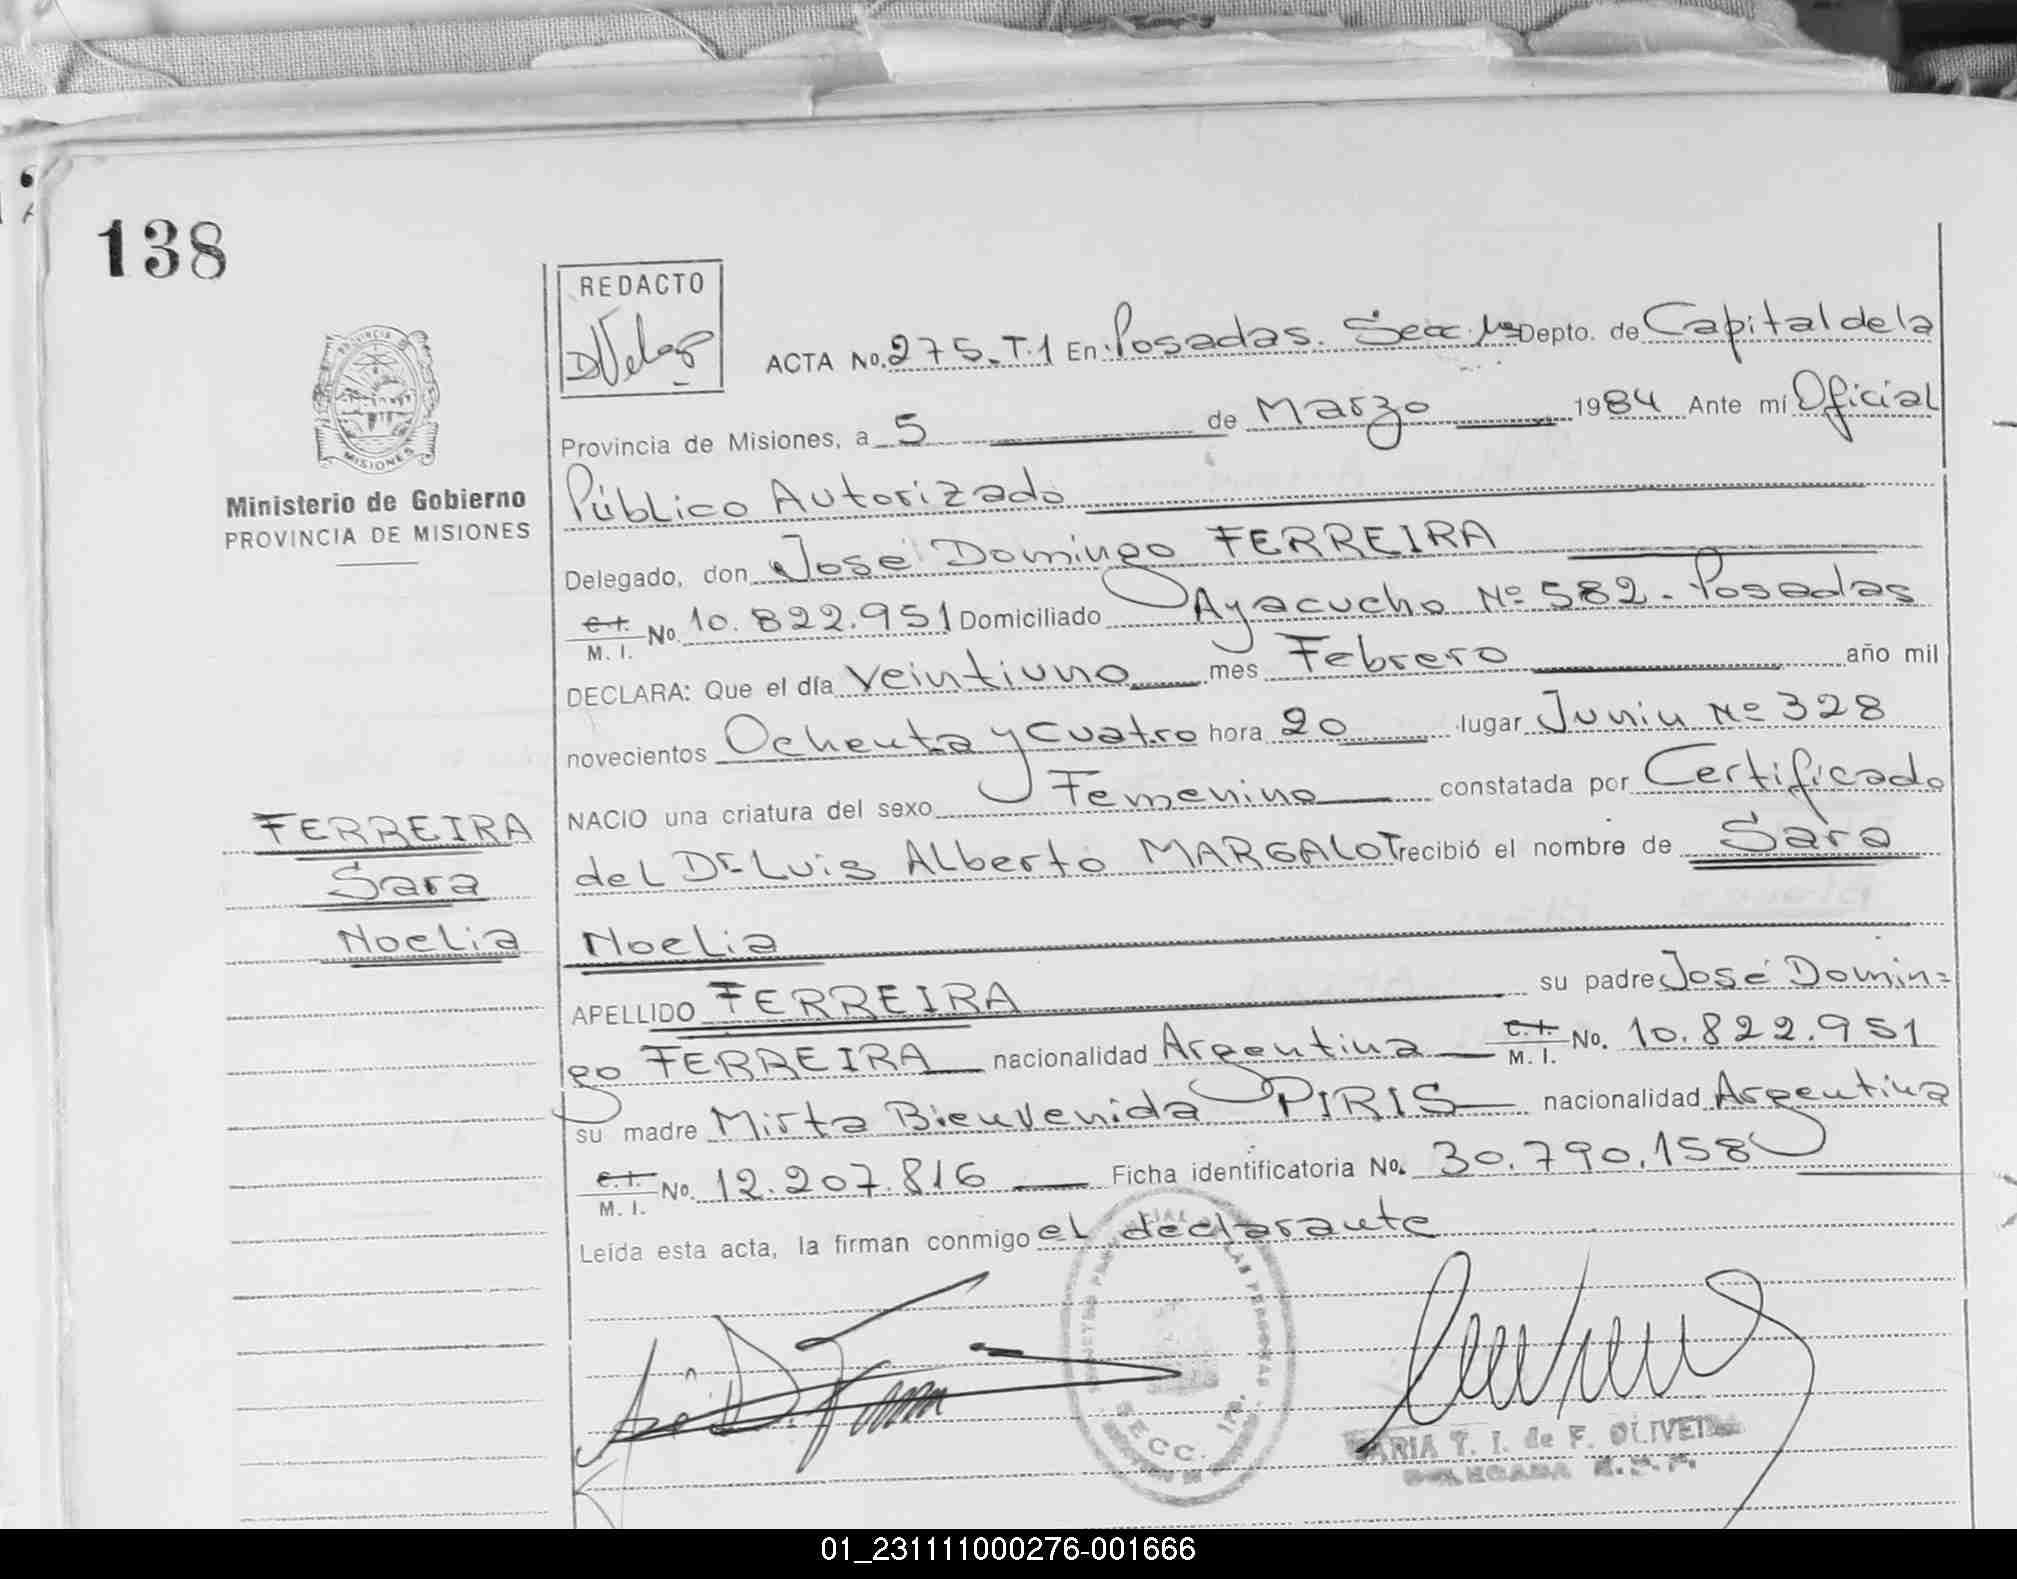 138
REDACTO
ACTA No. 275. T.1 En Posadas. Secc. 1ª Depto. de Capital de la
Provincia de Misiones, a 5 de Marzo 1984 Ante mí Oficial
Público Autorizado
Delegado, don José Domingo FERREIRA
C.I. M. I. No. 10.822.951 Domiciliado Ayacucho Nº 582 - Posadas
DECLARA: Que el día veintiuno mes Febrero año mil
novecientos Ochenta y Cuatro hora 20 lugar Junin Nº 328
NACIO una criatura del sexo Femenino constatada por Certificado
del Dr Luis Alberto MARGALOT recibió el nombre de Sara
Noelia
APELLIDO FERREIRA su padre José Domin=
go FERREIRA nacionalidad Argentina C.I. M. I. No. 10.822.951
su madre Mirta Bienvenida PIRIS nacionalidad Argentina
C.I. M. I. No. 12.207.816 Ficha identificatoria No. 30.790.158
Leída esta acta, la firman conmigo el declarante
PROVINCIA DE
MISIONES
Ministerio de Gobierno
PROVINCIA DE MISIONES
FERREIRA
Sara
Noelia
SECC. 1ra.
MARIA T. I. de F. OLIVEIRA
DELEGADA
01_231111000276-001666